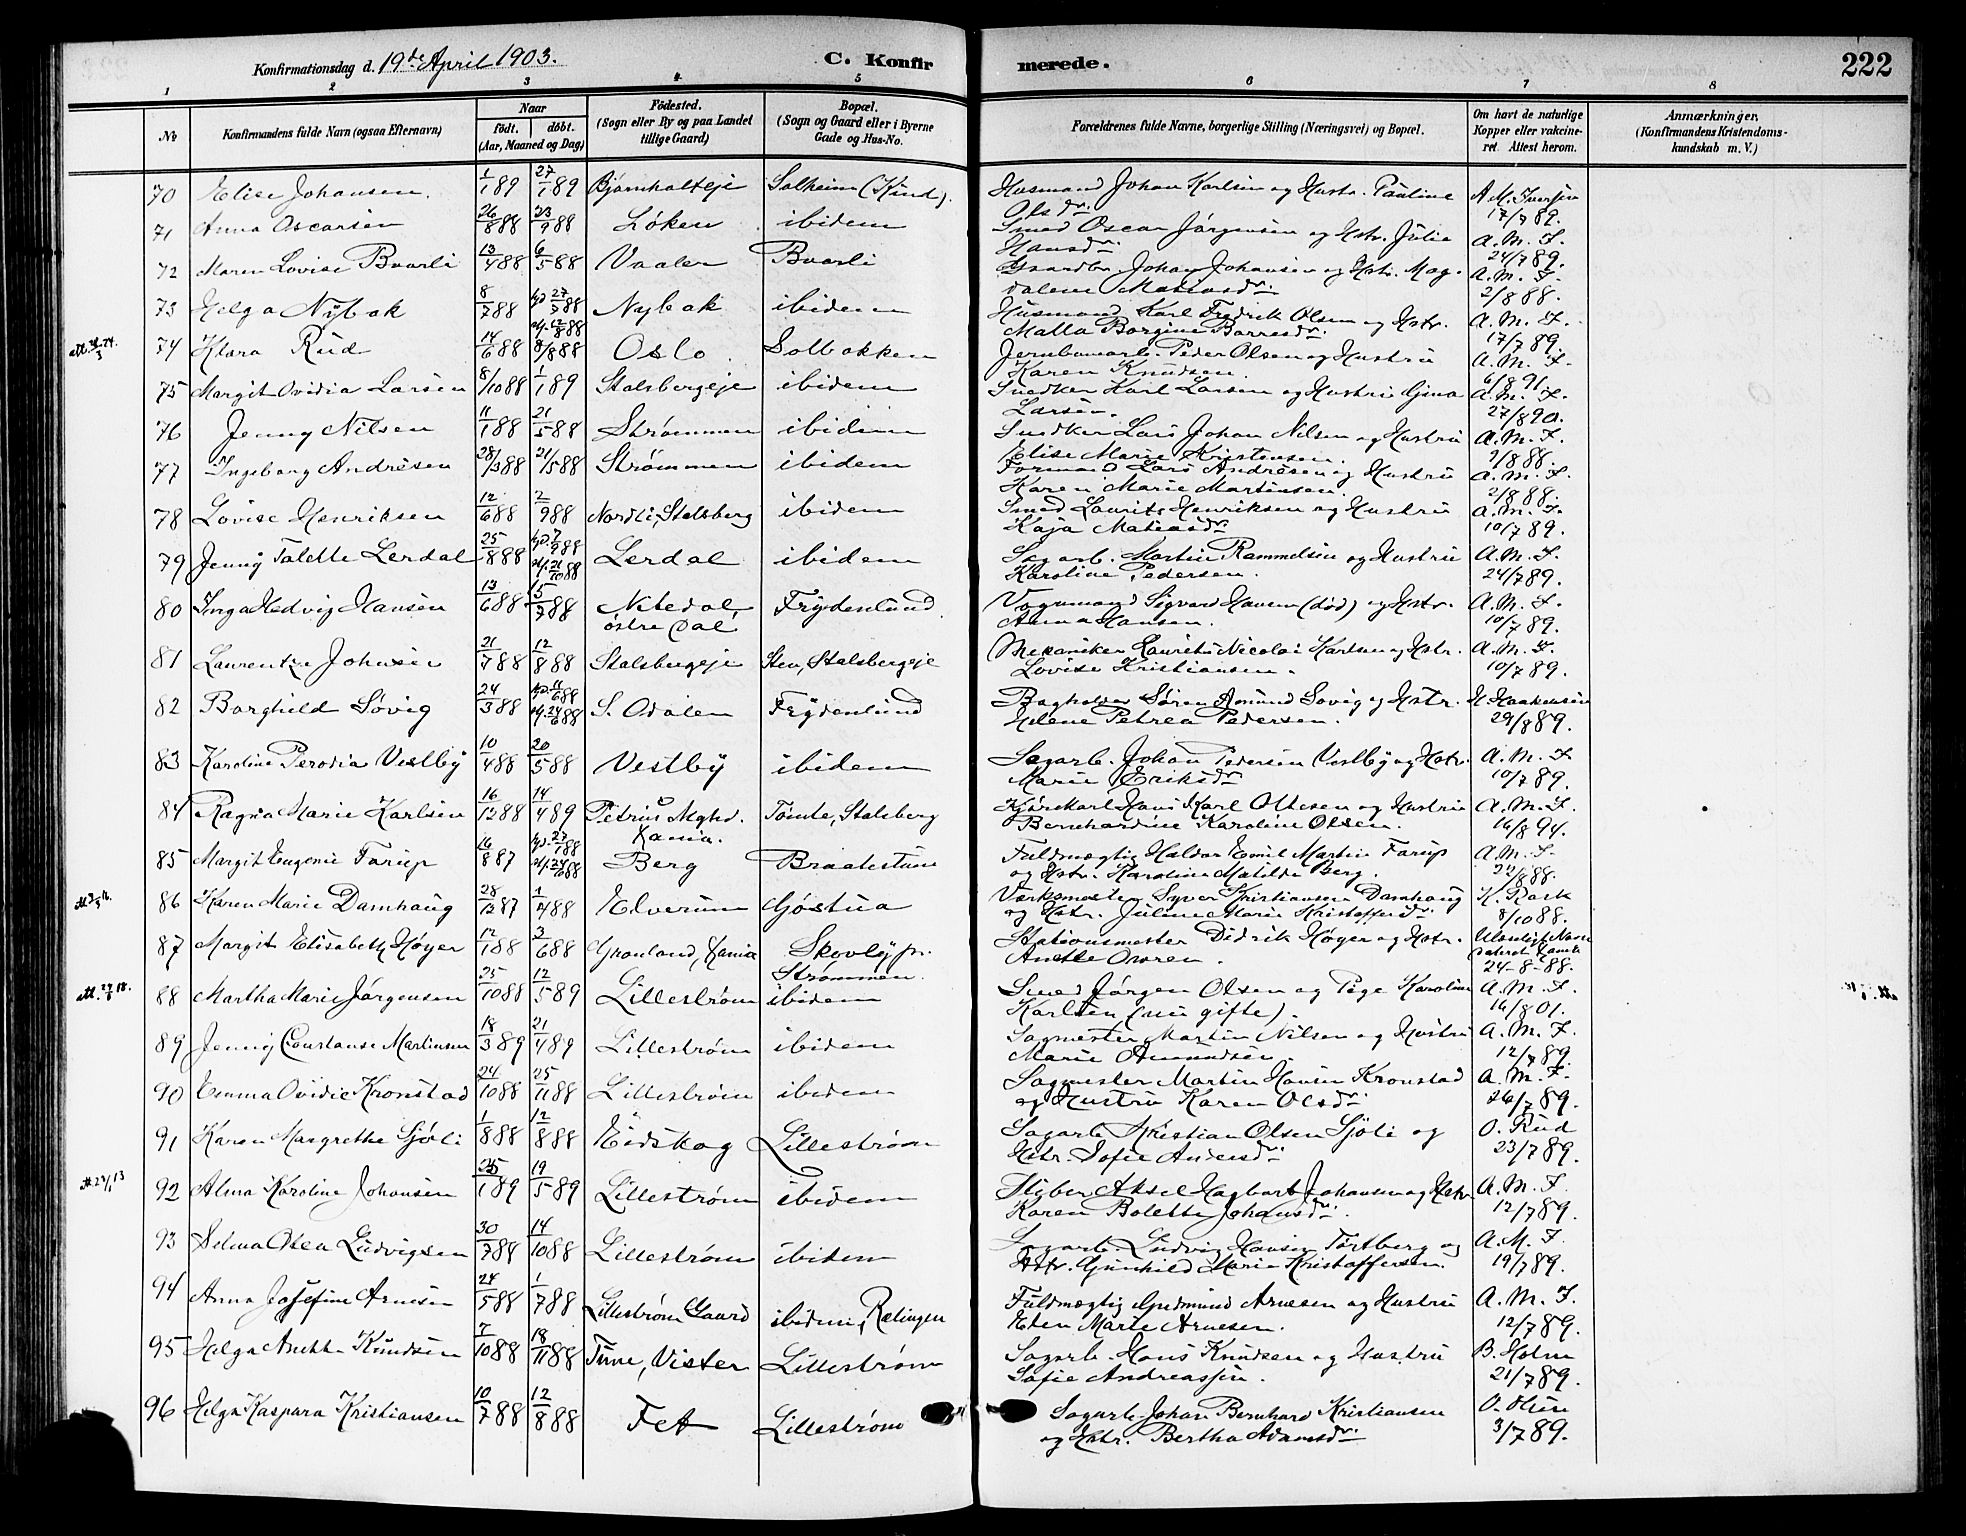 Konfirmationsdag d. 19de April 1903. C. Konfirmerede. 222
1 2 3 4 5 6 7 8
No
Konfirmandens fulde Navn (ogsaa Efternavn)
Naar
födt. döbt.
(Aar, Maaned og Dag)
Födested.
(Sogn eller By og paa Landet
tillige Gaard)
Bopæl.
(Sogn og Gaard eller i Byerne
Gade og Hus-No.
Forældrenes fulde Navne, borgerlige Stilling (Næringsvei) og Bopæl.
Om havt de naturlige
Kopper eller vakcine-
ret. Attest herom.
Anmærkninger.
(Konfirmandens Kristendoms-
kundskab m. V.)
70 Elise Johansen. 1/1 89 27/1 89 Bjørnholteje Solheim (Kind). Husmand Johan Karlsen og Hustr. Pauline A. M. Iversen
Olsdr. 17/7 89.
71 Anna Oscarsen 26/8 88 23/9 88 Løken ibidem Smed Oscar Jørgensen og Hstr. Julie A. M. I.
Hansdr. 24/7 89.
72 Maren Lovise Braarli 13/4 88 6/5 88 Vaaler Braarli Gaardbr. Johan Johansen og Hstr. Mag- A. M. I.
dalene Mathiasdr. 2/8 88.
73 Helga Nybak 8/7 88 27/7 88 12/8 88 Nybak ibidem Husmand Karl Fredrik Olsen og Hstr. A. M. I.
Malla Borgine 17/7 89.
74 Klara Rud 14/6 88 8/8 88 Oslo Solbakken Jernbanearb. Peder Olsen og Hustru A. M. I.
Karen Knudsen. 6/8 91.
75 Margit Ovidia Larsen 8/10 88 1/1 89 Stalsbergeje ibidem Snedker Karl Larsen og Hustru Gina A. M. I.
Larsen. 27/8 90.
76 Jenny Nilsen 11/1 88 21/5 88 Strømmen ibidem Snedker Lars Johan Nilsen og Hustru A. M. I.
Elise Marie Kristensen. 2/8 88.
77 Ingeborg Andresen 28/3 88 21/5 88 Strømmen ibidem Formand Lars Andresen og Hustru A. M. I.
Karen Marie Martinsen. 2/8 88.
78 Lovise Henriksen 12/6 88 2/9 88 Nordli, Stalsberg ibidem Smed Laurits Henriksen og Hustru A. M. I.
Kaja Matiasdr. 10/7 89.
79 Jenny Talette Lerdal 25/8 88 7/9 88 21/10 88 Lerdal ibidem Sagarb. Martin Rammelsen og Hustru A. M. I.
Karoline Pedersen. 24/7 89.
80 Inga Hedvig Hansen 13/6 88 15/7 88 Nitedal, Frydenlund Vognmand Sigvard Hansen (död) og Hstr. A. M. I.
östre Dal Anna Hansen. 10/7 89.
81 Laurentze Johnsen 21/7 88 12/8 88 Stalsbergeje Sten, Stalsbergeje Mekaniker Laurits Nicolai Karlsen og Hstr. A. M. I.
Lovise Kristiansen. 10/7 89.
82 Borghild Søvig 24/3 88 11/6 88 24/6 88 S. Odalen Frydenlund Bogholder Søren Amund Sovig og Hstr. H. Haakensen
Helene Petrea Pedersen. 29/8 89.
83 Karoline Perodia Vestby 10/4 88 20/5 88 Vestby ibidem Sagarb. Johan Pedersen Vestby og Hstr. A. M. I.
Marie Eriksdr. 10/7 89.
84 Ragna Marie Karlsen 16/12 88 14/4 89 Petrus Mghd. Tömte, Stalsberg Kjörekarl Hans Karl Ottesen og Hustru A. M. I.
Xania. Bernhardine Karoline Olsen. 16/8 94.
85 Margit Eugenie Farup 16/8 87 27/1 88 24/10 88 Berg Braatestuen Fuldmægtig Haldor Emil Martin Farup A. M. I.
og Hstr. Karoline Matilde Berg. 22/8 88.
86 Karen Marie Damhaug 28/12 87 1/4 88 Elverum Gjöstua Værksmester Syver Kristiansen Damhaug K. Rask
og Hstr. Juline Marie Kristoffersdr. 8/10 88.
87 Margit Elisabeth Høyer 12/1 88 3/6 88 Grønland, Xania Skovly pr. Stationsmester Didrik Høyer og Hstr. Ulæseligt Navn
Strømmen. Anette Ovren. dateret Hamar 24-8-88.
88 Martha Marie Jørgensen 25/10 88 12/5 89 Lillestrøm ibidem Smed Jørgen Olsen og Pige Karoline A. M. I.
Karlsen (nu gifte). 16/8 01.
89 Jenny Constanse Martinsen 18/3 89 21/4 89 Lillestrøm ibidem Sagmester Martin Nilsen og Hustru A. M. I.
Marie Amundsen. 12/7 89.
90 Emma Ovidie Kronstad 24/10 88 25/11 88 Lillestrøm ibidem Sagmester Martin Hansen Kronstad A. M. I.
og Hustru Karen Olsdr. 26/7 89.
91 Karen Margrethe Sjöli 1/8 88 12/8 88 Eidskog Lillestrøm Sagarb. Kristian Olsen Sjöli og O. Rud
Hstr. Sofie Andersdr. 23/7 89.
92 Alma Karoline Johansen 25/1 89 19/5 89 Lillestrøm ibidem Flyber Aksel Hagbart Johansen og Hstr. A. M. I.
Karen Bolette Johansdr. 12/7 89.
93 Selma Olea Ludvigsen 30/7 88 14/10 88 Lillestrøm ibidem Sagarb. Ludvig Hansen Törtberg og A. M. I.
Hstr. Gunhild Marie Kristoffersen. 19/7 89.
94 Anna Josefine Arnesen 24/5 88 1/7 88 Lillestrøm Gaard ibidem, Rælingen Fuldmægtig Gudmund Arnesen og Hustru A. M. I.
Eten Marie Arnesen. 12/7 89.
95 Helga Anette Knudsen 7/10 88 18/11 88 Tune, Vister Lillestrøm Sagarb. Hans Knudsen og Hustru B. Holm
Sofie Andreassen. 21/7 89.
96 Helga Kaspara Kristiansen 10/7 88 12/8 88 Fet Lillestrøm Sagarb. Johan Bernhard Kristiansen O. Olsen
og Hstr. Bertha Adamsdr. 3/7 89.